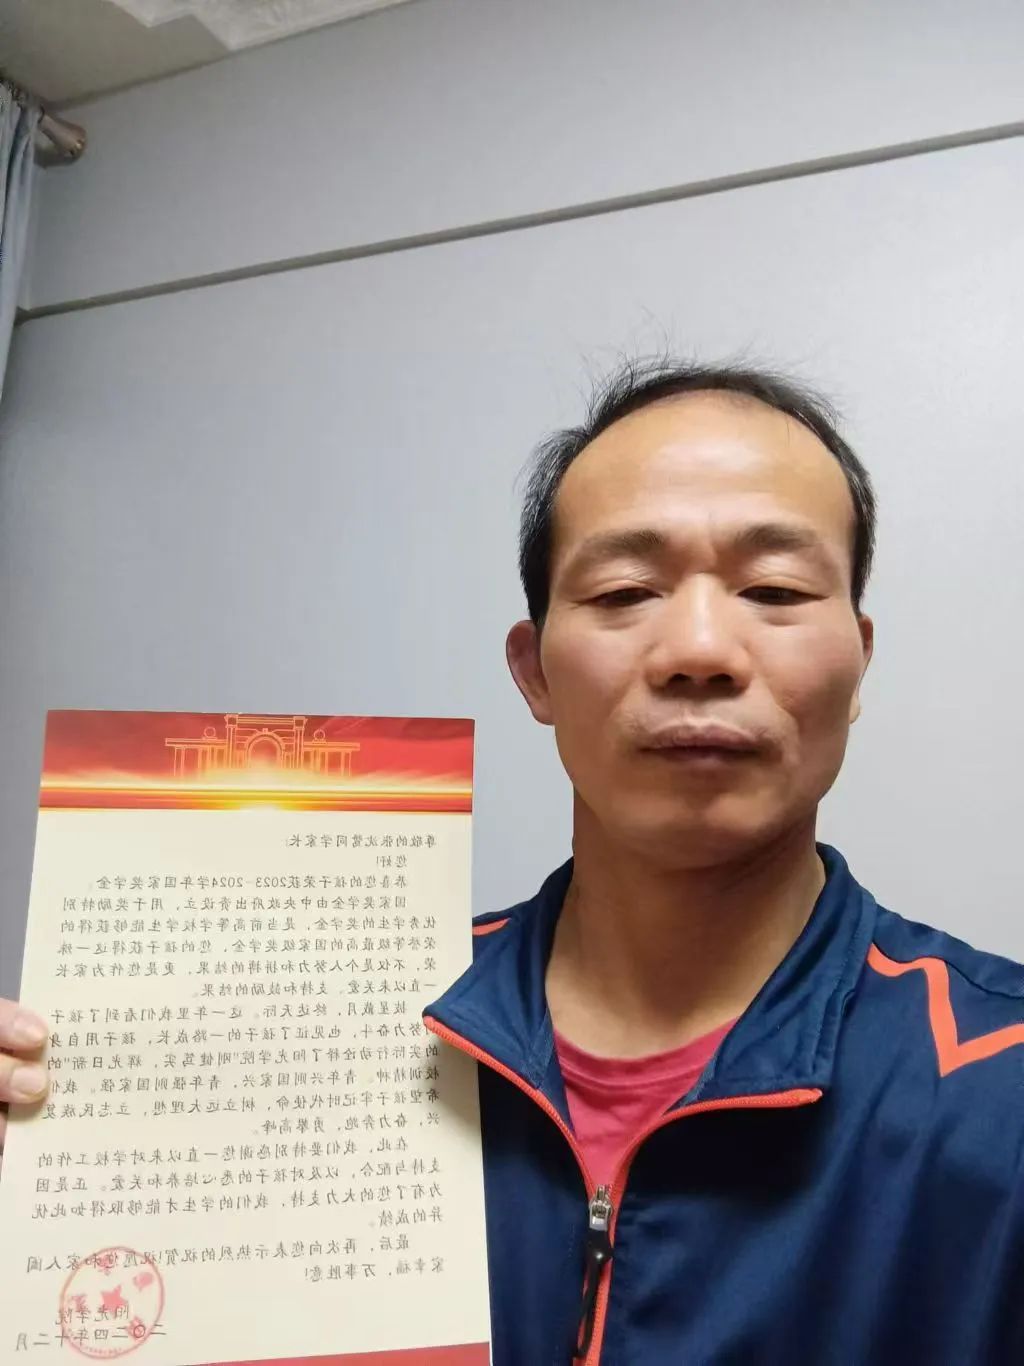 尊敬的张沈鹭同学家长:
您好!
恭喜您的孩子荣获2023-2024学年国家奖学金。
国家奖学金由中央政府出资设立,用于奖励特别
优秀学生的奖学金,是当前高等学校学生能够获得的
荣誉等级最高的国家级奖学金,您的孩子获得这一殊
荣,不仅是个人努力和拼搏的结果,更是您作为家长
一直以来关爱、支持和鼓励的结果。
披星戴月,终达天际。这一年里我们看到了孩子
的努力奋斗,也见证了孩子的一路成长,孩子用自身
的实际行动诠释了阳光学院"刚健笃实,辉光日新"的
校训精神。青年兴则国家兴,青年强则国家强。我们
希望孩子牢记时代使命,树立远大理想,立志民族复
兴,奋力奔跑,勇攀高峰。
在此,我们要特别感谢您一直以来对学校工作的
支持与配合,以及对孩子的悉心培养和关爱。正是因
为有了您的大力支持,我们的学生才能够取得如此优
异的成绩。
最后,再次向您表示热烈的祝贺!祝愿您和家人阖
家幸福,万事胜意!
阳光学院
二〇二四年十二月